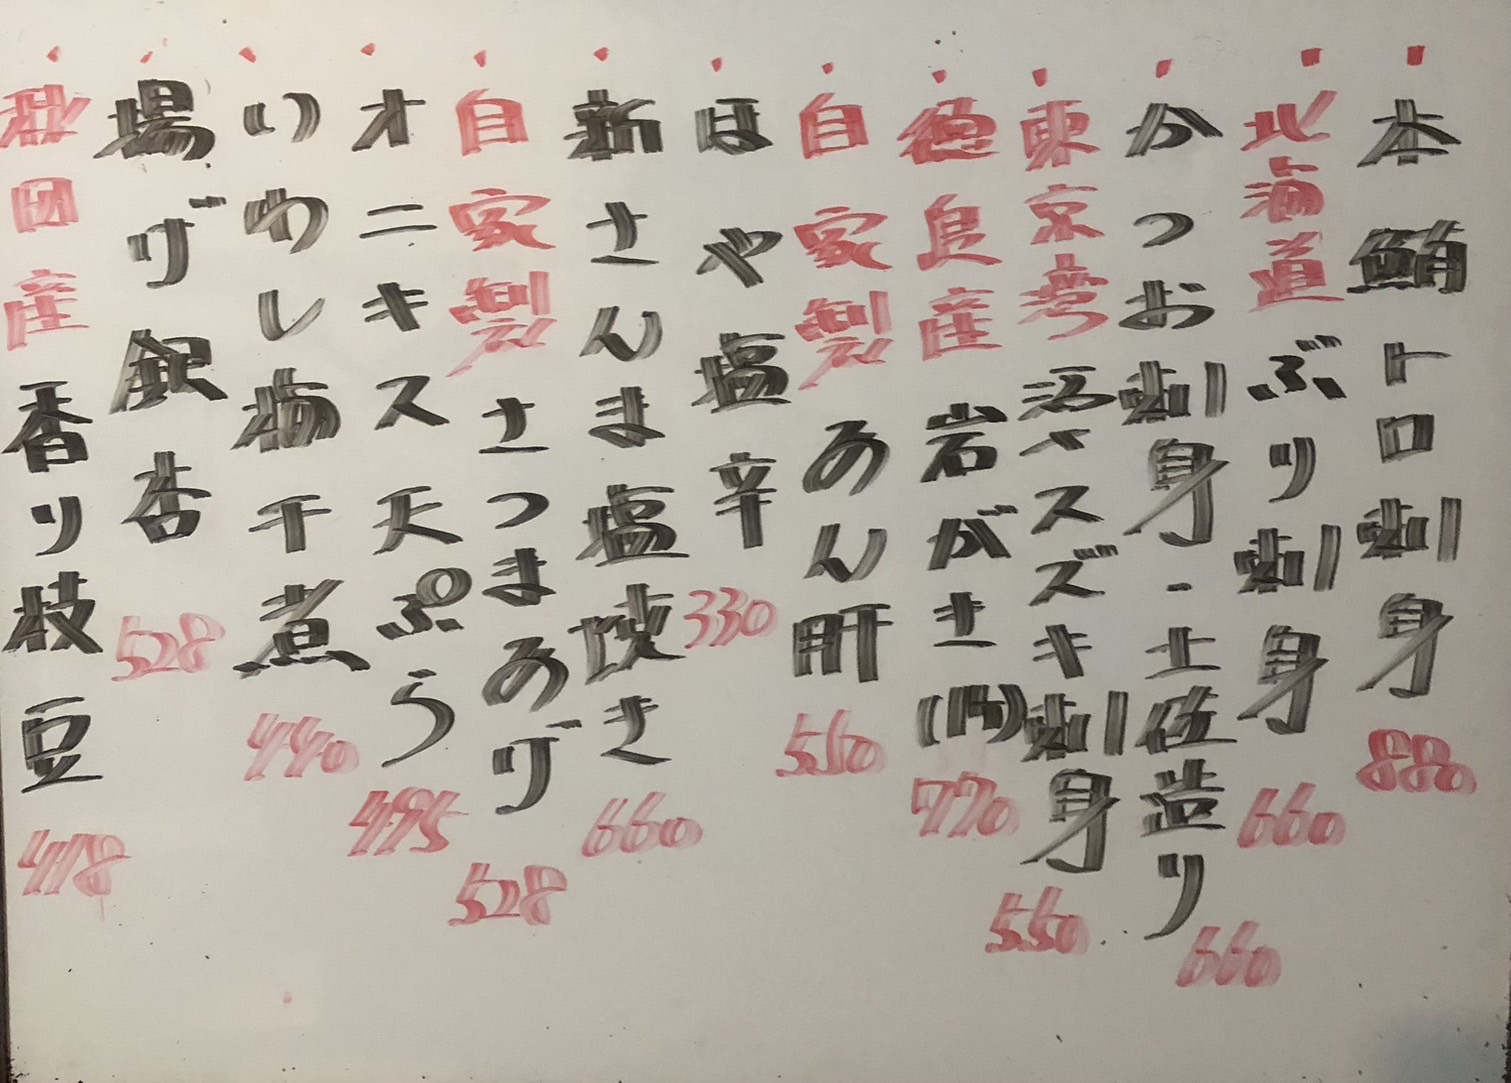 ・本鮪トロ刺身 880
・北海道ぶり刺身 660
・かつお刺身・土佐造り 660
・東京湾活〆スズキ刺身 550
・徳島産岩がき(1ケ) 770
・自家製あん肝 550
・ほや塩辛 330
・新さんま塩焼き 660
・自家製さつまあげ 528
・オニキス天ぷら 495
・いわし梅干煮 440
・揚げ銀杏 528
・秋田産香り枝豆 418